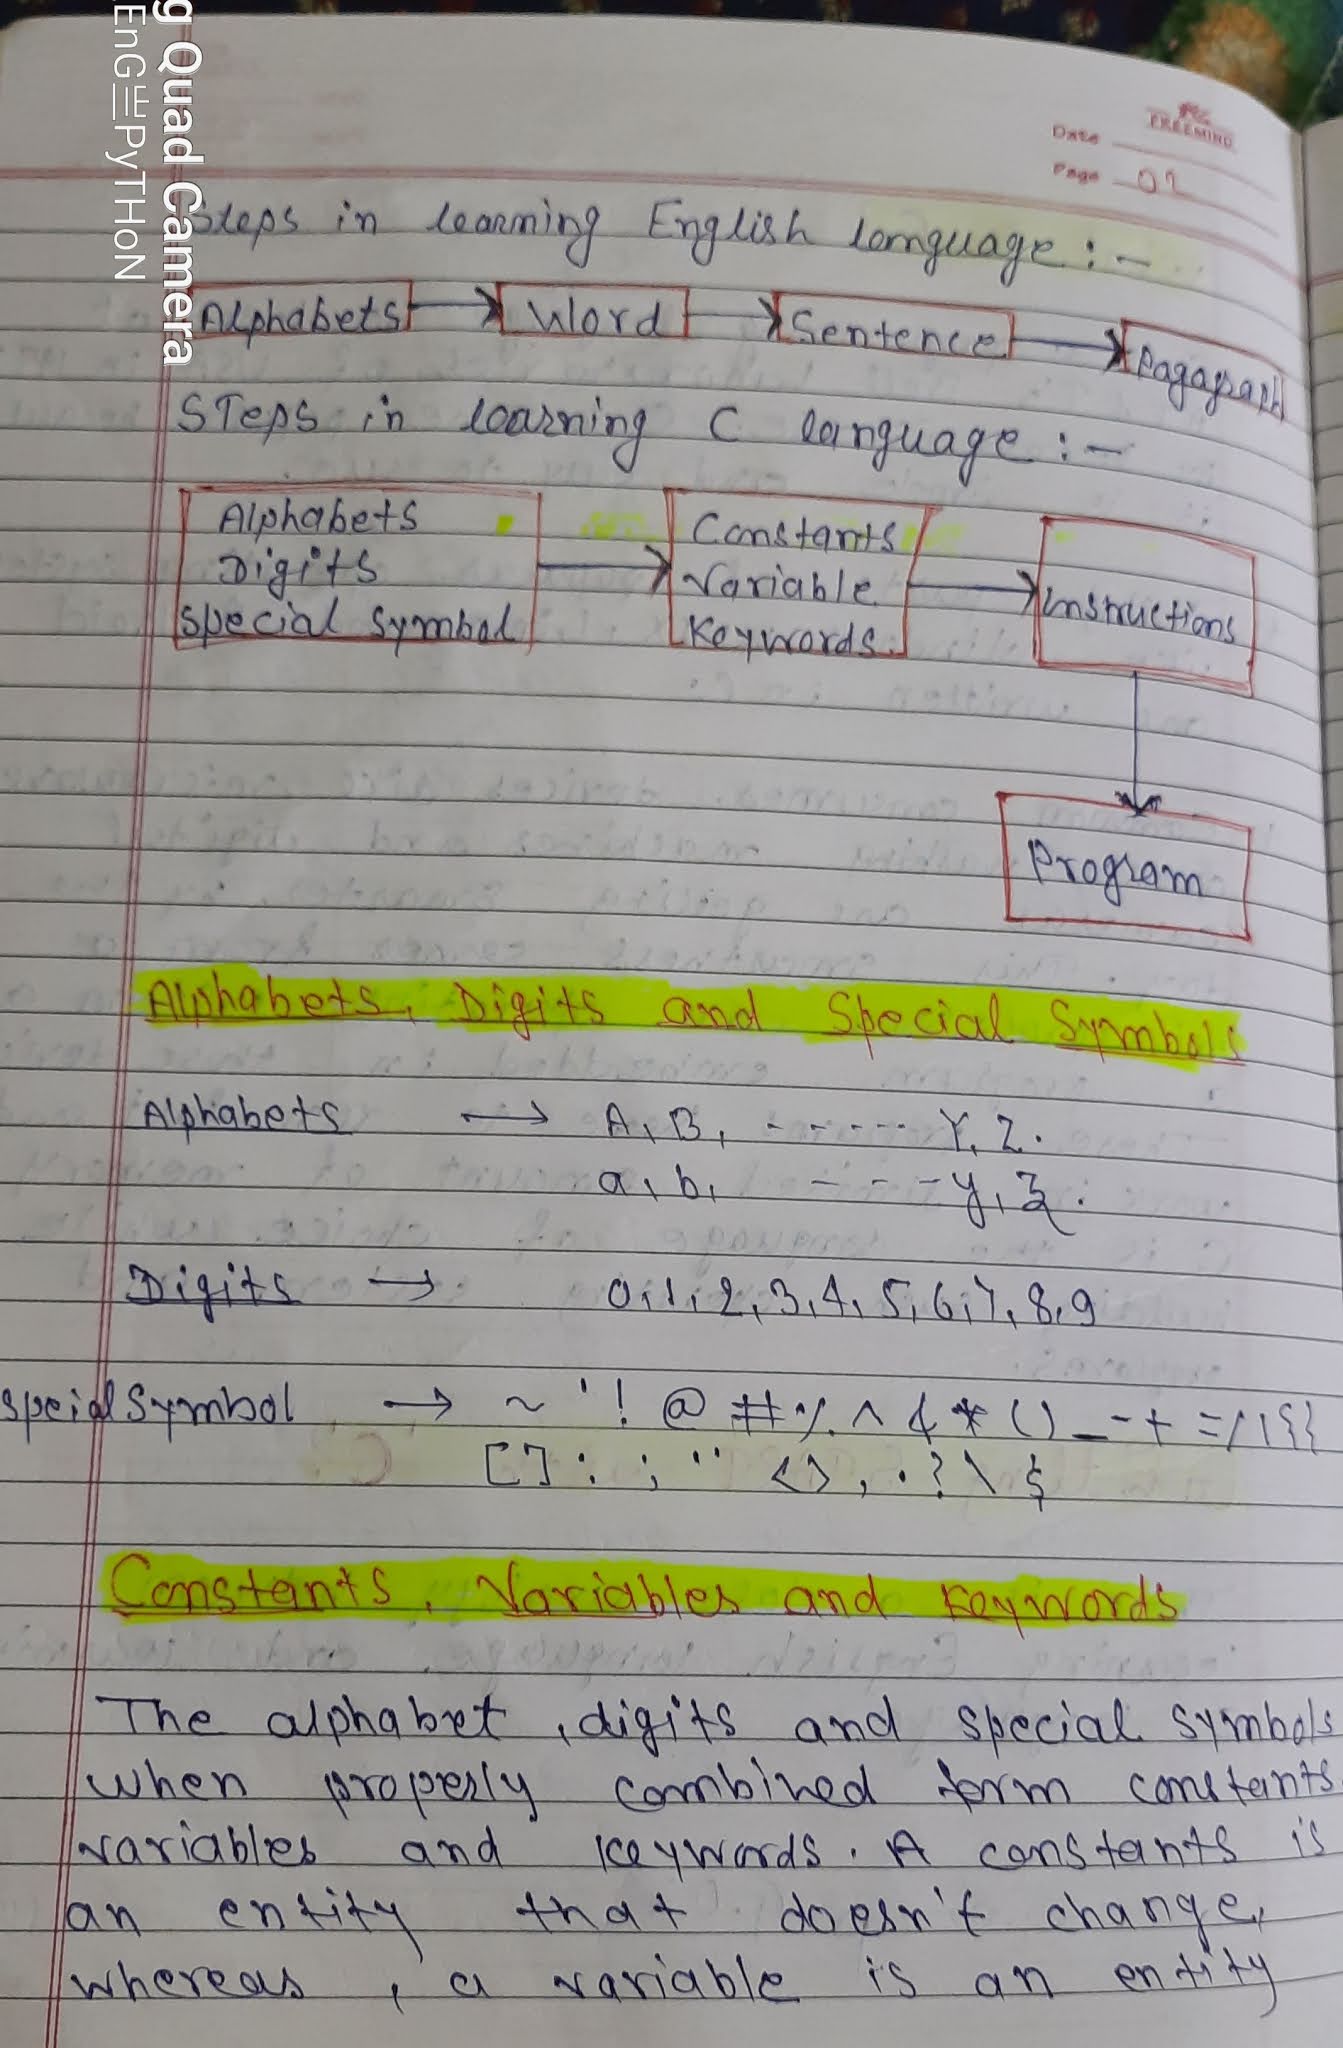 g Quad Camera
EnG PyTHoN
FREEMIND
Date
Page 02
Steps in learning English language :-
Alphabets → Word → Sentence → Pagagraph
STeps in learning C language :-
Alphabets
Digits
Special Symbol
→
Constants
Variable
Keywords
→
Instructions
Program
Alphabets, Digits and Special Symbols
Alphabets → A, B, ------ Y, Z.
a, b, ---- y, z.
Digits → 0,1,2,3,4,5,6,7,8,9
speial Symbol → ~ ' ! @ # % ^ & * ( ) _ - + = / | { }
[ ] : ; " < > , . ? \ $
Constants, Variables and Keywords
The alphabet, digits and special symbols
when properly combined form constants
variables and keywords. A constants is
an entity that doesn't change,
whereas, a variable is an entity